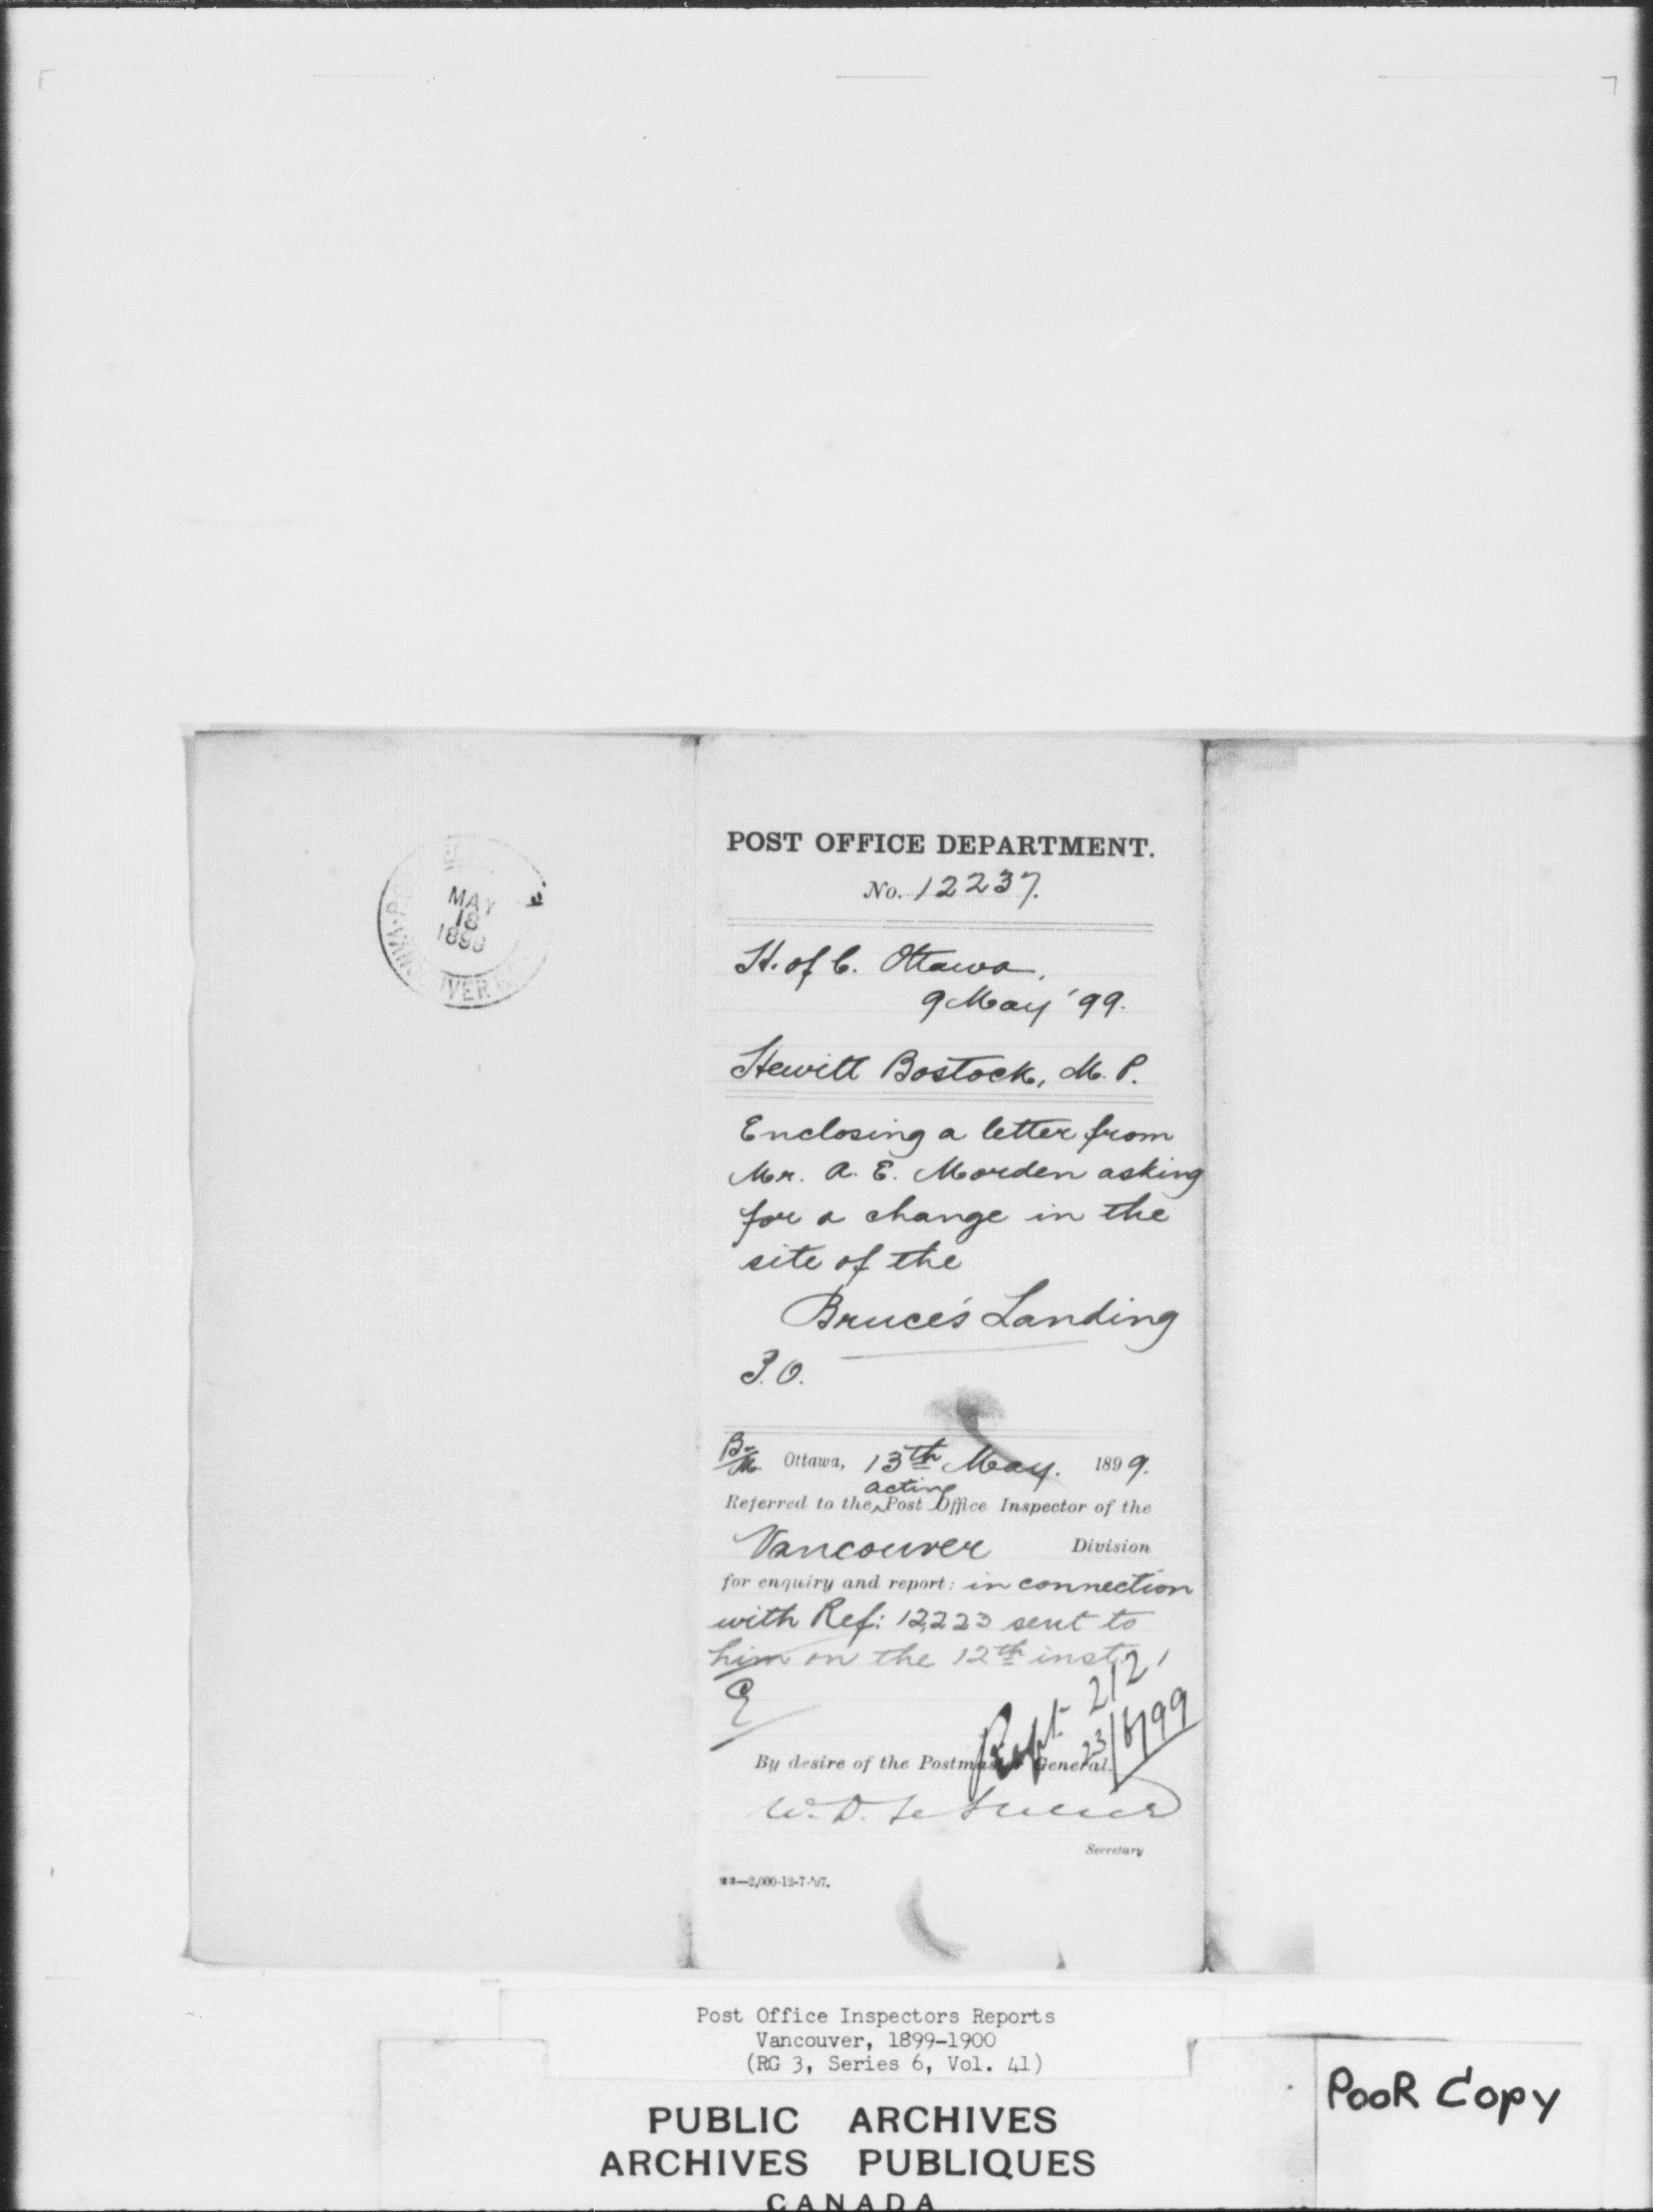 MAY
18
1899
POST OFFICE DEPARTMENT.
No. 12237.
H. of C. Ottawa,
9 May '99.
Hewitt Bostock, M. P.
Enclosing a letter from
Mr. A. E. Morden asking
for a change in the
site of the
Bruce's Landing
P.O.
B/M. Ottawa, 13th May. 1899.
acting
Referred to the Post Office Inspector of the
Vancouver Division
for enquiry and report: in connection
with Ref: 12,223 sent to
him on the 12th inst.
Rept. 212
23/6/99
By desire of the Postmaster General.
W. D. LeSueur
Secretary
23—2,000-12-7-'97.
Post Office Inspectors Reports
Vancouver, 1899-1900
(RG 3, Series 6, Vol. 41)
PUBLIC ARCHIVES
ARCHIVES PUBLIQUES
CANADA
POOR COPY